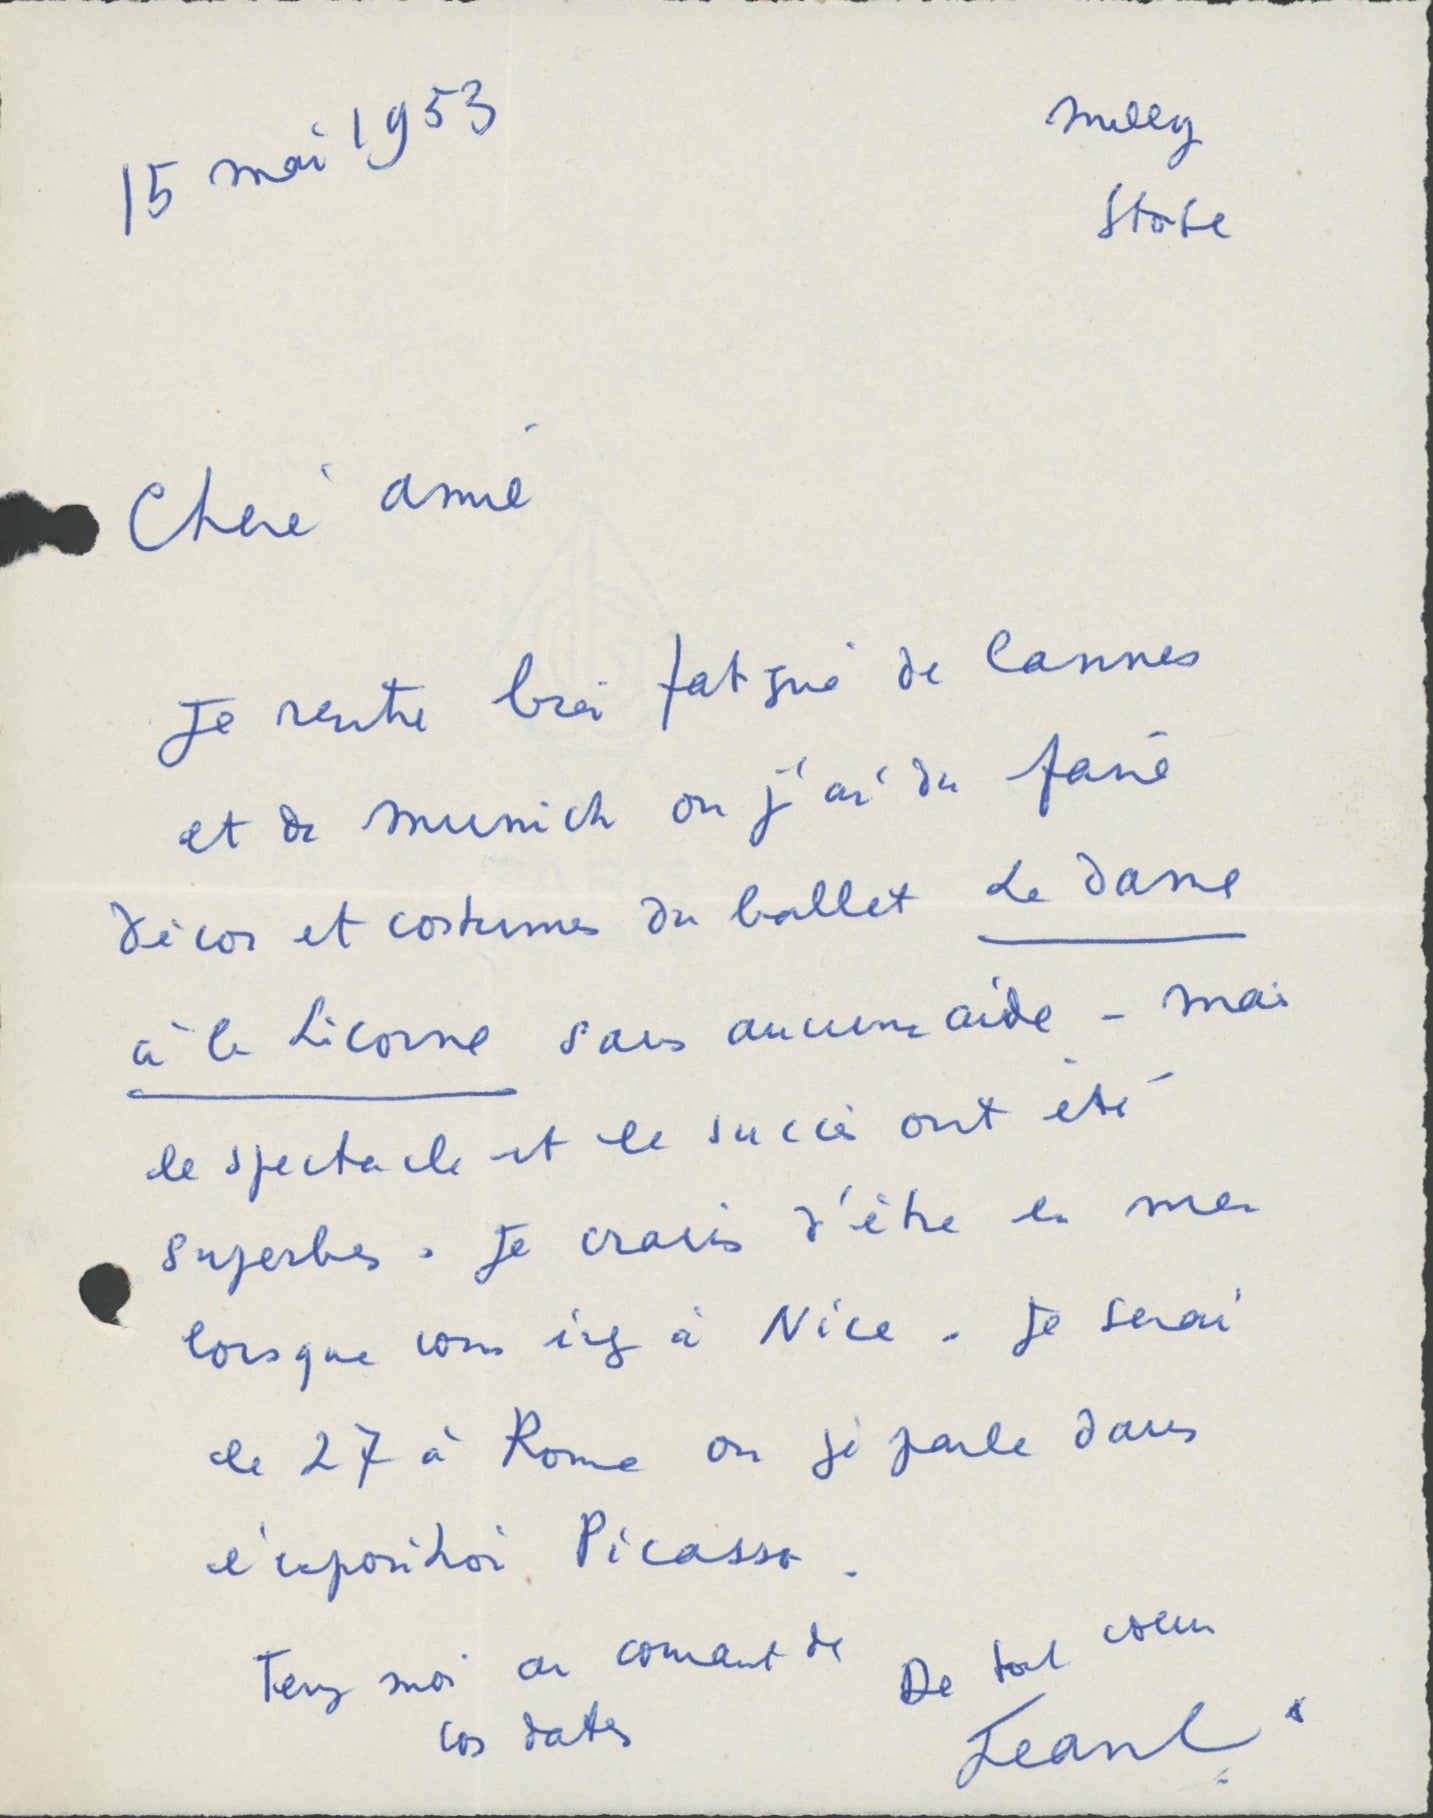 15 mai 1953
Milly
S et O
Chère amie
Je rentre bien fatigué de Cannes
et de Munich ou j'ai du faire
décor et costumes du ballet La dame
à la Licorne sans aucune aide - mais
le spectacle et le succès ont été
superbes. Je crains d'être en mer
lorsque vous irez à Nice. Je serai
le 27 à Rome ou je parle dans
l'exposition Picasso.
Tenez moi au courant de
vos dates
De tout cœur
Jean C